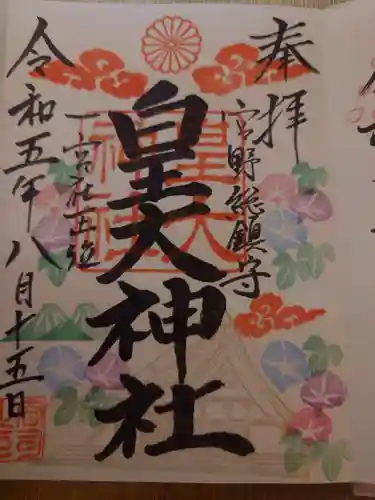 奉拝
宮野総鎮守
皇大神社
皇大神社
令和五年八月十五日